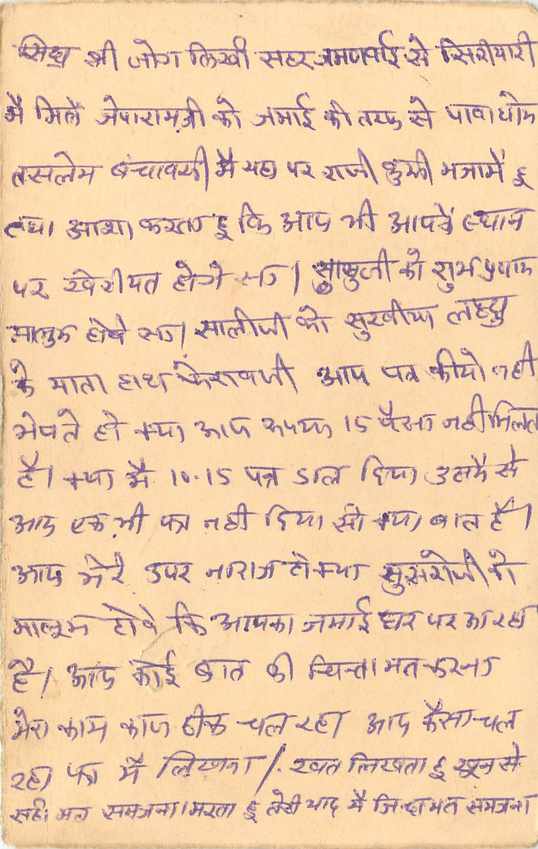 सिध श्री जोग लिखी सहर जमणवाई से सिरीयारी
मै मिले जेपारामजी को जमाई की तरफ से पावाधोक
तसलेम बंचावसी मै यहा पर राजी खुशी मजामें हू
तथा आशा करता हू कि आप भी आपके स्थान
पर खेरीयत होगे सा। सासुजी को शुभ प्रणाम
मालुम होवे सा। सालीजी को सुखीया
के माता हाथ फेरावजो आप पत्र कीयो नही
भेजते हो क्या आप रुपया 15 पैसा नही मिलता
है। क्या मै 10.15 पत्र डाल दिया उसमै से
आप एक भी पत्र नही दिया सो क्या बात है।
आप मेरे उपर नाराज हो क्या सुसरोजी को
मालुम होवे कि आपका जमाई घर पर आ रहा
है। आप कोई बात की चिन्ता मत करना
मेरा काम काज ठीक चल रहा आप कैसा चल
रहा पत्र मै लिखना /. खत लिखता हू खून से
सही मत समजना। मरता हू तेरी याद मै जिन्दा मत समजना